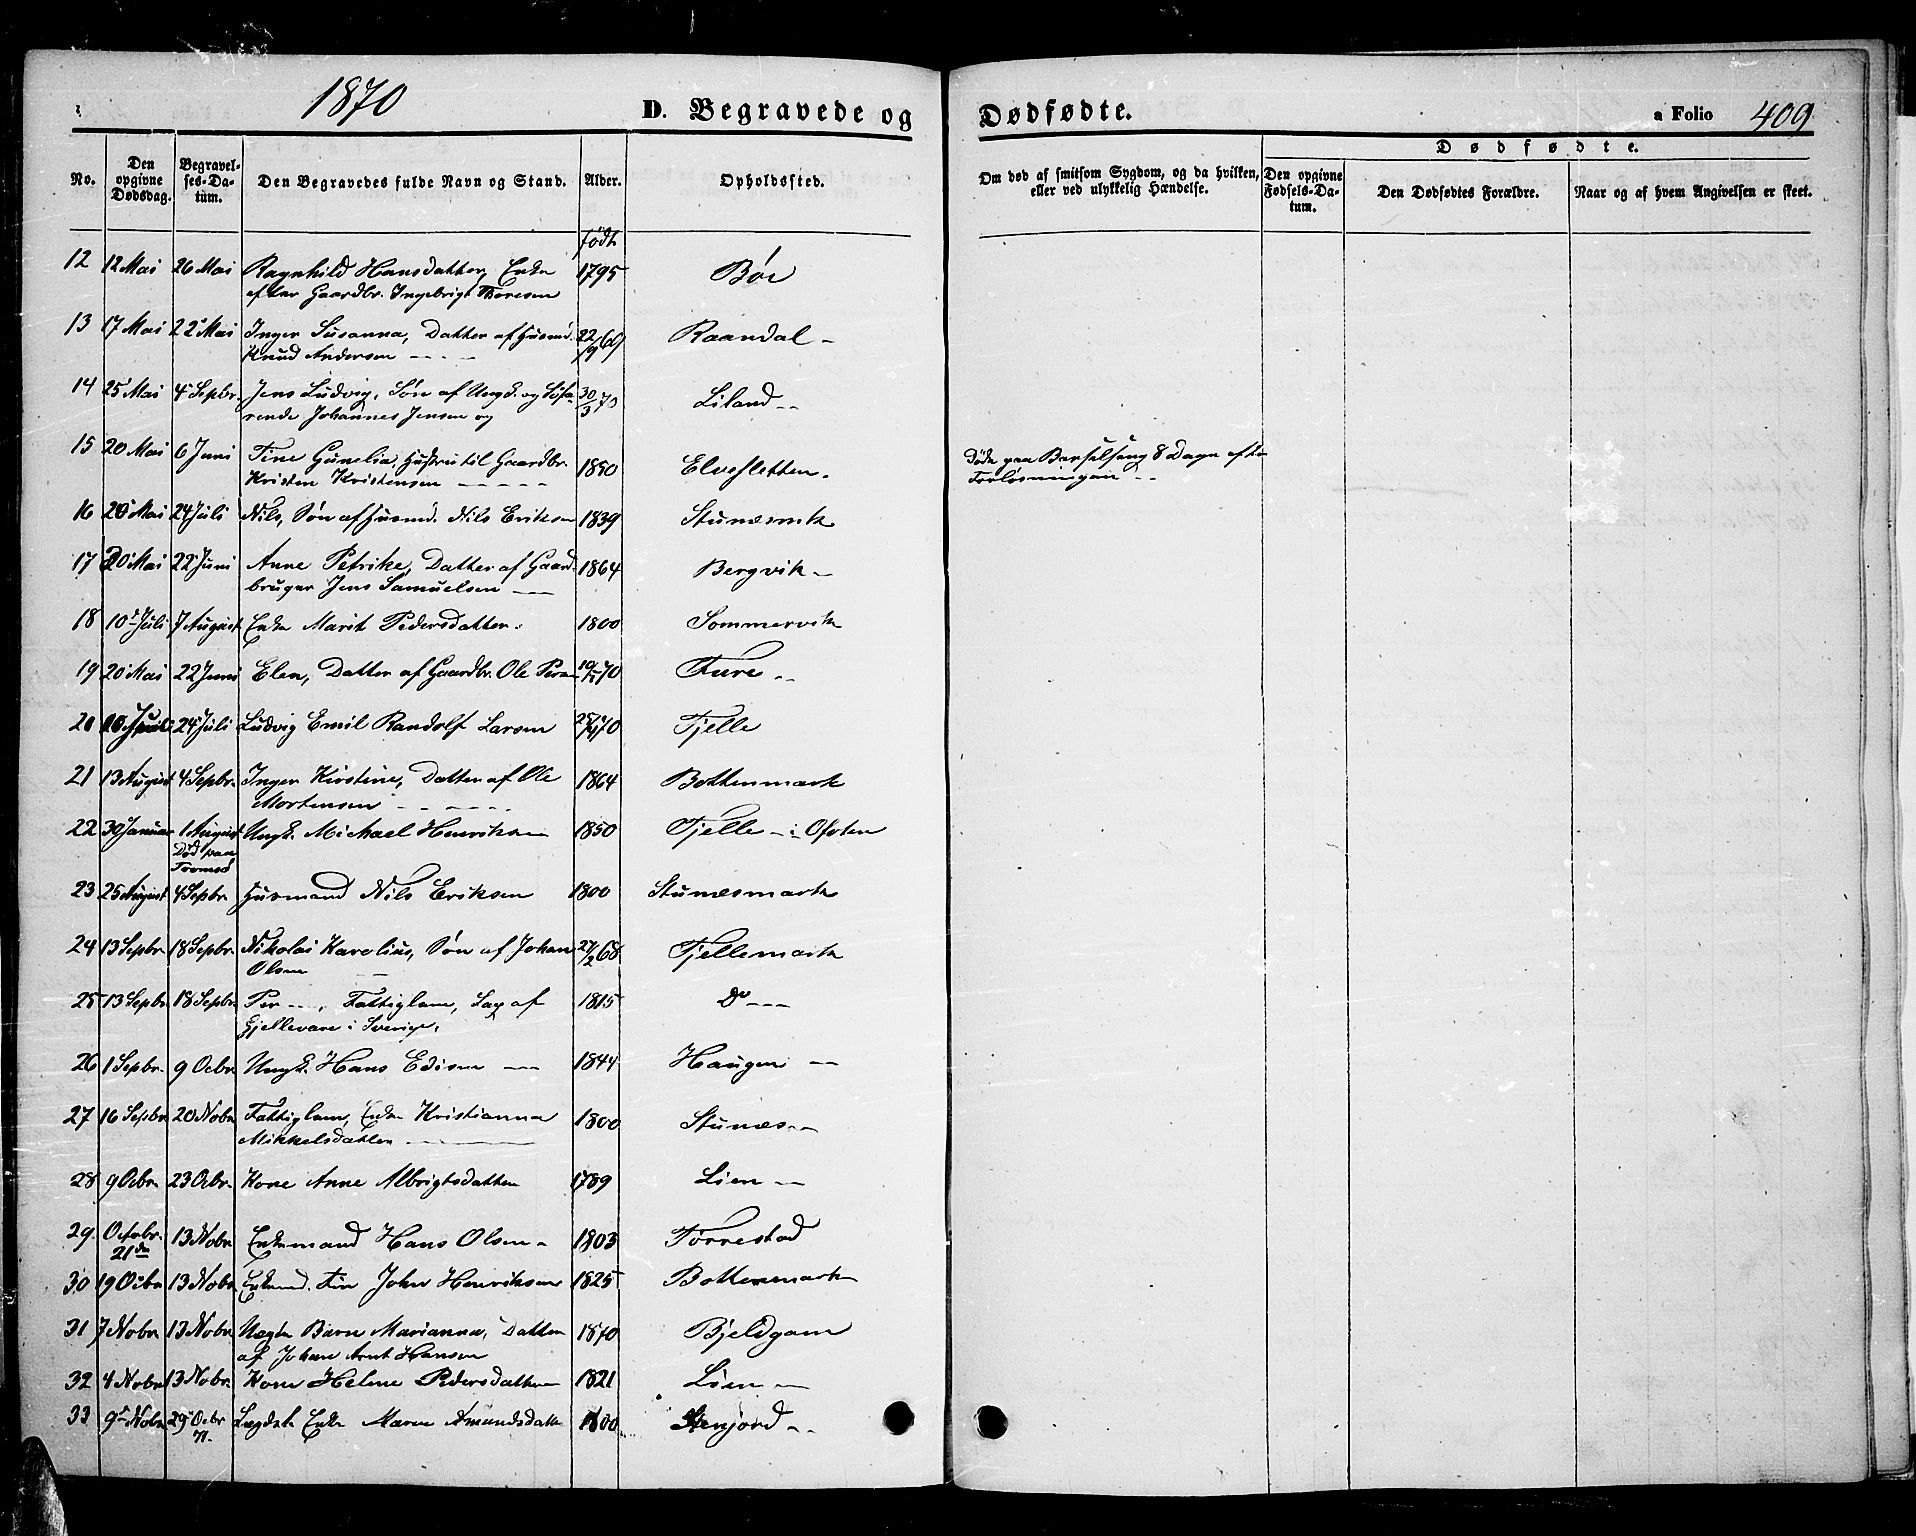 1870
D. Begravede og Dødfødte.
a Folio 409
No.
Den opgivne Dødsdag.
Begravelses-Datum.
Den Begravedes fulde Navn og Stand.
Alder.
Opholdssted.
Om død af smitsom Sygdom, og da hvilken, eller ved ulykkelig Hændelse.
Dødfødte.
Den opgivne Fødsels-Datum.
Den Dødfødtes Forældre.
Naar og af hvem Angivelsen er skeet.
født
12 12 Mai 26 Mai Ragnhild Hansdatter, Enke 1795 Böe
efter Gaardbr. Ingebrigt Thoresen
13 17 Mai 22 Mai Inger Susanna, Datter af Husmd. 22/9 69 Raandal
Knud Andersen
14 25 Mai 4 Sepbr. Jens Ludvig, Søn af Ungk. og Söfa- 30/3 70 Liland
rende Johannes Jensen og
15 20 Mai 6 Juni Tine Gunelia, Hustru til Gaardbr. 1850 Elvesletten Døde paa Barselseng 8 Dage efter
Kristen Kristensen Forløsningen
16 20 Mai 24 Juli Nils, Søn af Husmd. Nils Eriksen 1839 Stunesmk
17 20 Mai 22 Juni Anne Petrike, Datter af Gaard- 1864 Bergvik
bruger Jens Samuelsen
18 10 Juli 7 August Enke Marit Pedersdatter 1800 Sommervik
19 20 Mai 22 Juni Elen, Datter af Gaardbr. Ole 70 Fure
20 24 Juli Ludvig Emil Randolf Larsen 70 Fjelle
21 13 August 4 Sepbr. Inger Kirstine, Datter af Ole 1864 Bottenmark
Mortensen
22 30 Januar 1 August Ungk. Michael Henriksen 1850 Fjelle i Ofoten
Död paa
Tromsö
23 25 August 4 Sepbr. Husmand Nils Eriksen 1800 Stunesmark
24 13 Sepbr. 18 Sepbr. Nikolai Karolius, Søn af Johan 27/2 68 Fjellemark
Olsen
25 13 Sepbr. 18 Sepbr. Per — , Fattiglem, Lap af 1815 Do
Gjellevare i Sverige.
26 1 Sepbr. 9 Ocbr. Ungk. Hans Edisen 1844 Haugen
27 16 Sepbr. 20 Nobr. Fattiglem, Enke Kristianna 1800 Stunes
Mikkelsdatter
28 9 Ocbr. 23 Ocbr. Kone Anne Albrigtsdatter 1789 Lien
29. Octobr. 13 Nobr. Enkemand Hans Olsen 1803 Forrestad
21de
30 19 Ocbr. 13 Nobr. Enkemd. Fin John Henriksen 1825 Bottenmark
31 7 Nobr. 13 Nobr. Uægte Barn Marianna, Datter 1870 Bjeldgam
af Johan Arnt Hansen
32 4 Nobr. 13 Nobr. Kone Helene Pedersdatter 1821 Lien
33 9 Nobr. 29 Ocbr. Lægdsl. Enke Maren Amundsdatter 1800
71.